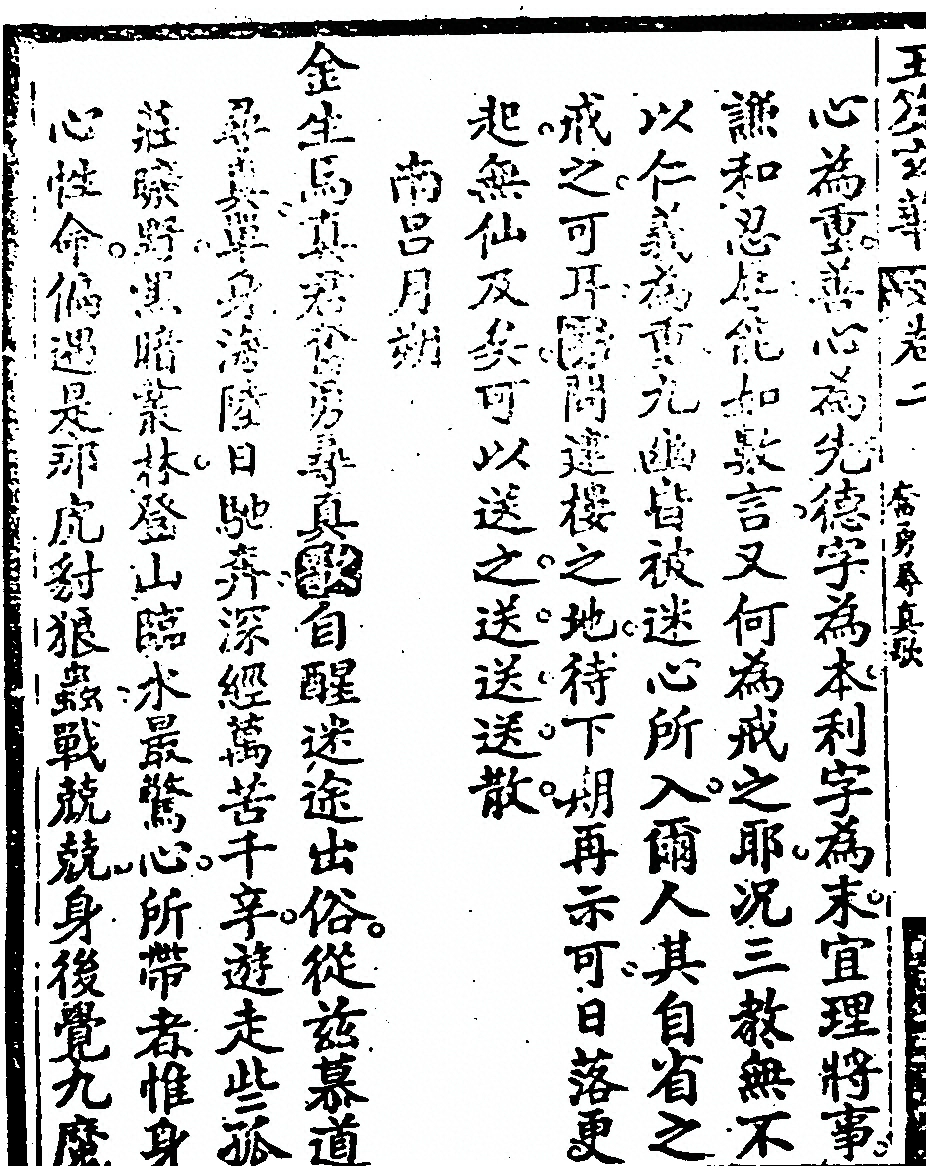 卷二
奮勇尋真歌
心為重善心為先德字為本利字為末宜理將事
謙和忍辱能如數言又何為戒之耶況三教無不
以仁義為重九幽皆被迷心所入爾人其自省之
戒之可耳問建樓之地待下期再示可日落更
起無仙及矣可以送之送送送散
南呂月朔
金生馬真君奮勇尋真歌自醒迷途出俗從茲慕道
尋真單身海陸日馳奔深經萬苦千辛遊走些孤
莊曠野黑暗叢林登山臨水最驚心所帶者惟身
心性命偏遇是那虎豺狼蟲戰兢兢身後覺九魔